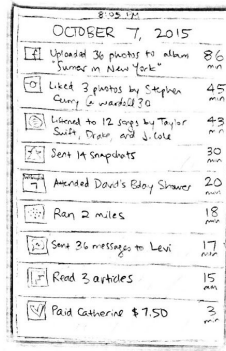 8:05 PM
OCTOBER 7, 2015
Uploaded 36 photos to album 86
"Sumer in New York" min
Liked 3 photos by Stephen 45
Curry @ wardell30 min
Listened to 12 songs by Taylor 43
Swift, Drake, and J. Cole min
Sent 14 snapchats 30
min
Attended David's Bday Shower 20
min
Ran 2 miles 18
min
Sent 36 messages to Levi 17
min
Read 3 articles 15
min
Paid Catherine $7.50 3
min